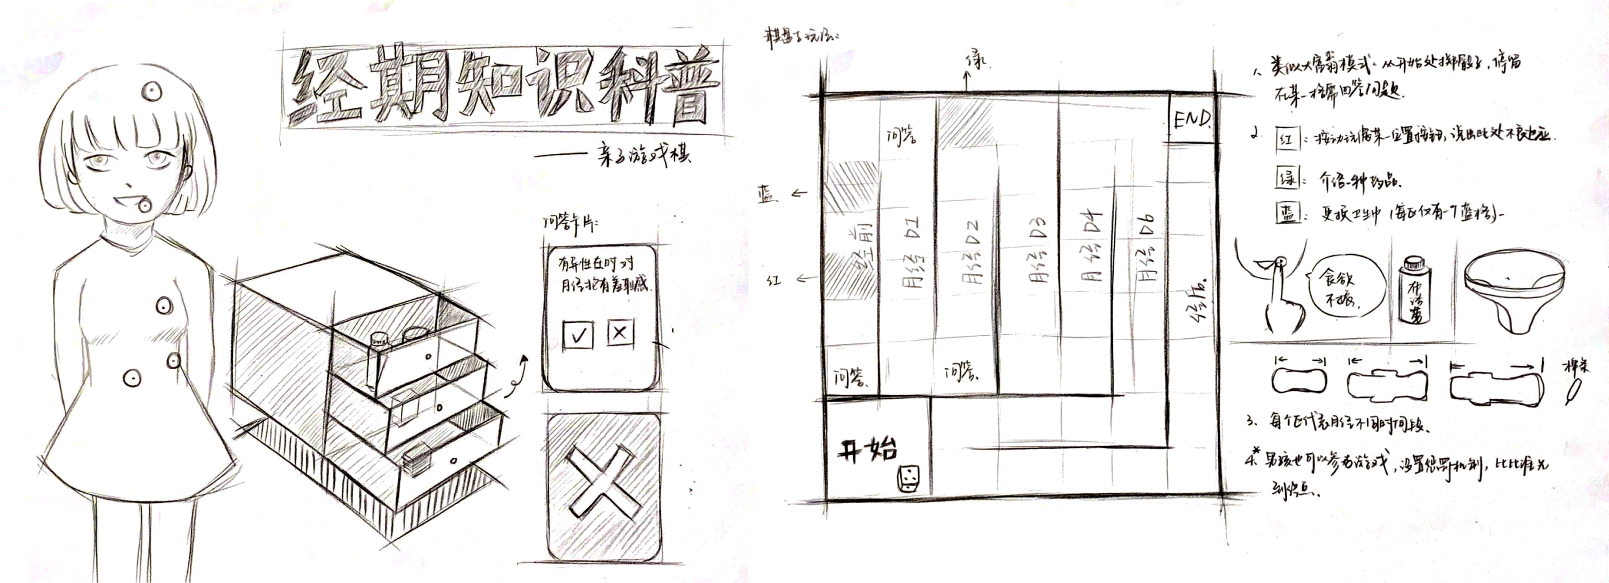 经期知识科普
—— 亲子游戏棋
问答卡片:
有异性在时对
月经就有羞耻感
棋盘与玩法:
绿
蓝
红
问答
END.
经前
月经D1
月经D2
月经D3
月经D4
月经D6
经后
问答.
问答.
开始
1、类似大富翁模式:从开始处掷骰子,停留
在某一格需回答问题.
2. 红:按动玩偶某一位置按钮,说出此处不良反应.
绿:介绍一种药品.
蓝:更换卫生巾(每区仅有一个蓝格).
食欲
不振.
布洛芬
棉条
3、每个区代表月经不同时间段.
4.* 男孩也可以参与游戏,设置
机制,比比谁先
到终点.